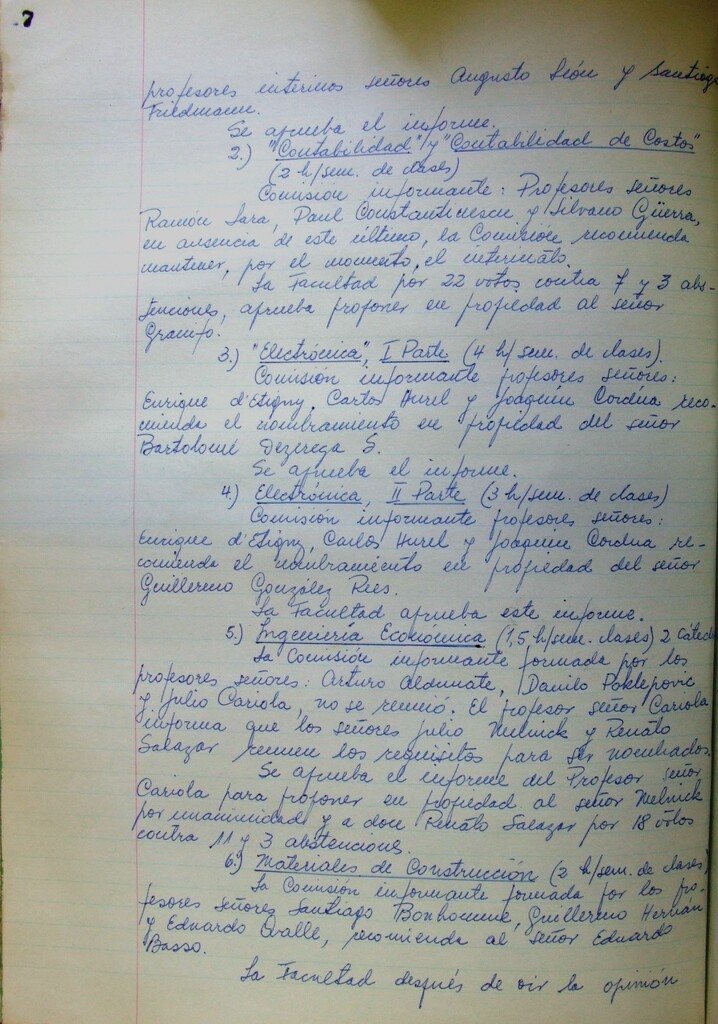 7
profesores interinos señores Augusto León y Santiago
Friedmann.
Se aprueba el informe.
2.) "Contabilidad" y "Contabilidad de Costos"
(2 h/sem. de clases)
Comisión informante: Profesores señores
Ramón Lara, Paul Constantinescu y Silvano Güerra,
en ausencia de este último, la Comisión recomienda
mantener, por el momento, el interinato.
La Facultad por 22 votos contra 7 y 3 abs-
tenciones, aprueba proponer en propiedad al señor
3.) "Electrónica", I Parte (4 h/sem. de clases).
Comisión informante profesores señores:
Enrique d'Etigny, Carlos Hurel y Joaquín Cordua reco-
mienda el nombramiento en propiedad del señor
Bartolomé Dezerega S.
Se aprueba el informe.
4.) Electrónica, II Parte (3 h/sem. de clases)
Comisión informante profesores señores:
Enrique d'Etigny, Carlos Hurel y Joaquín Cordua re-
comienda el nombramiento en propiedad del señor
Guillermo González Rees.
La Facultad aprueba este informe.
5.) Ingeniería Económica (1,5 h/sem. clases) 2 cáted
La Comisión informante formada por los
profesores señores: Arturo Aldunate, Danilo Poklepovic
y Julio Cariola, no se reunió. El profesor señor Cariola
informa que los señores Julio Melnick y Renato
Salazar reunen los requisitos para ser nombrados.
Se aprueba el informe del Profesor señor
Cariola para proponer en propiedad al señor Melnick
por unanimidad y a don Renato Salazar por 18 votos
contra 11 y 3 abstenciones.
6.) Materiales de Construcción (2 h/sem. de clases)
La Comisión informante formada por los pro-
fesores señores Santiago Bonhomme, Guillermo Hernán
y Eduardo Ovalle, recomienda al señor Eduardo
Basso.
La Facultad después de oir la opinión